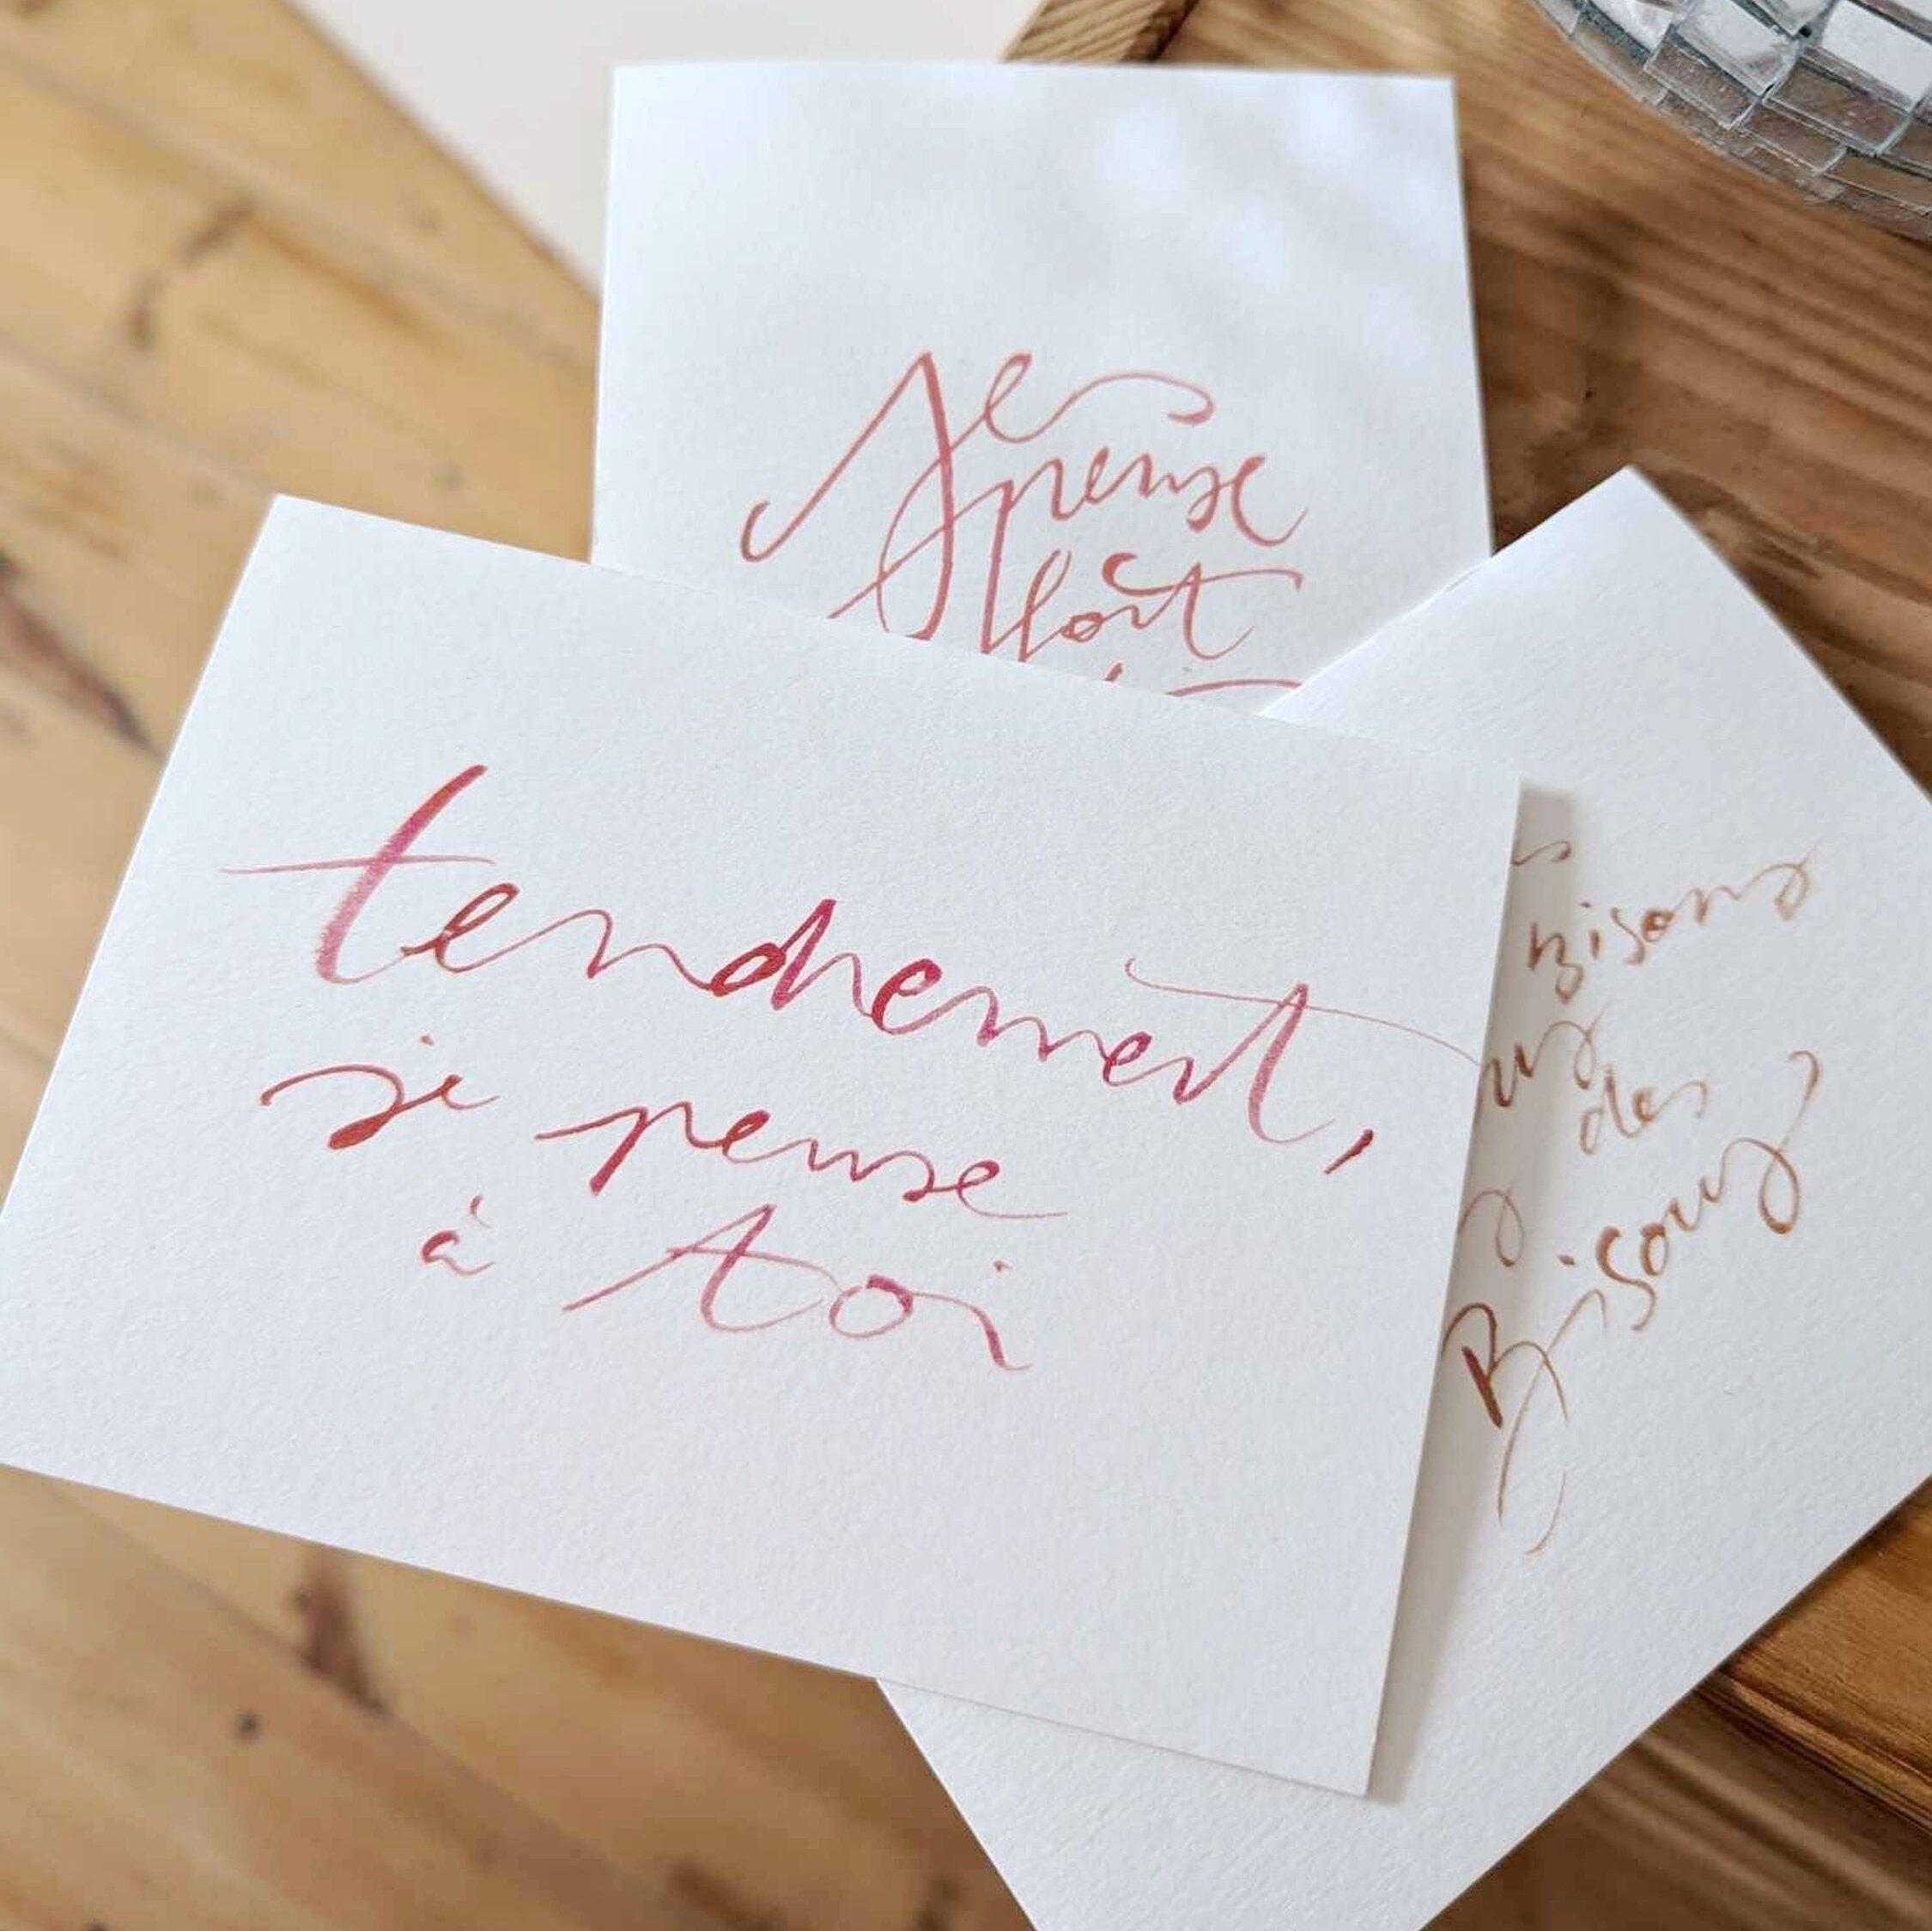 Je
pense
fort
tendrement,
je pense
à toi
Bisons
des
Bisoux